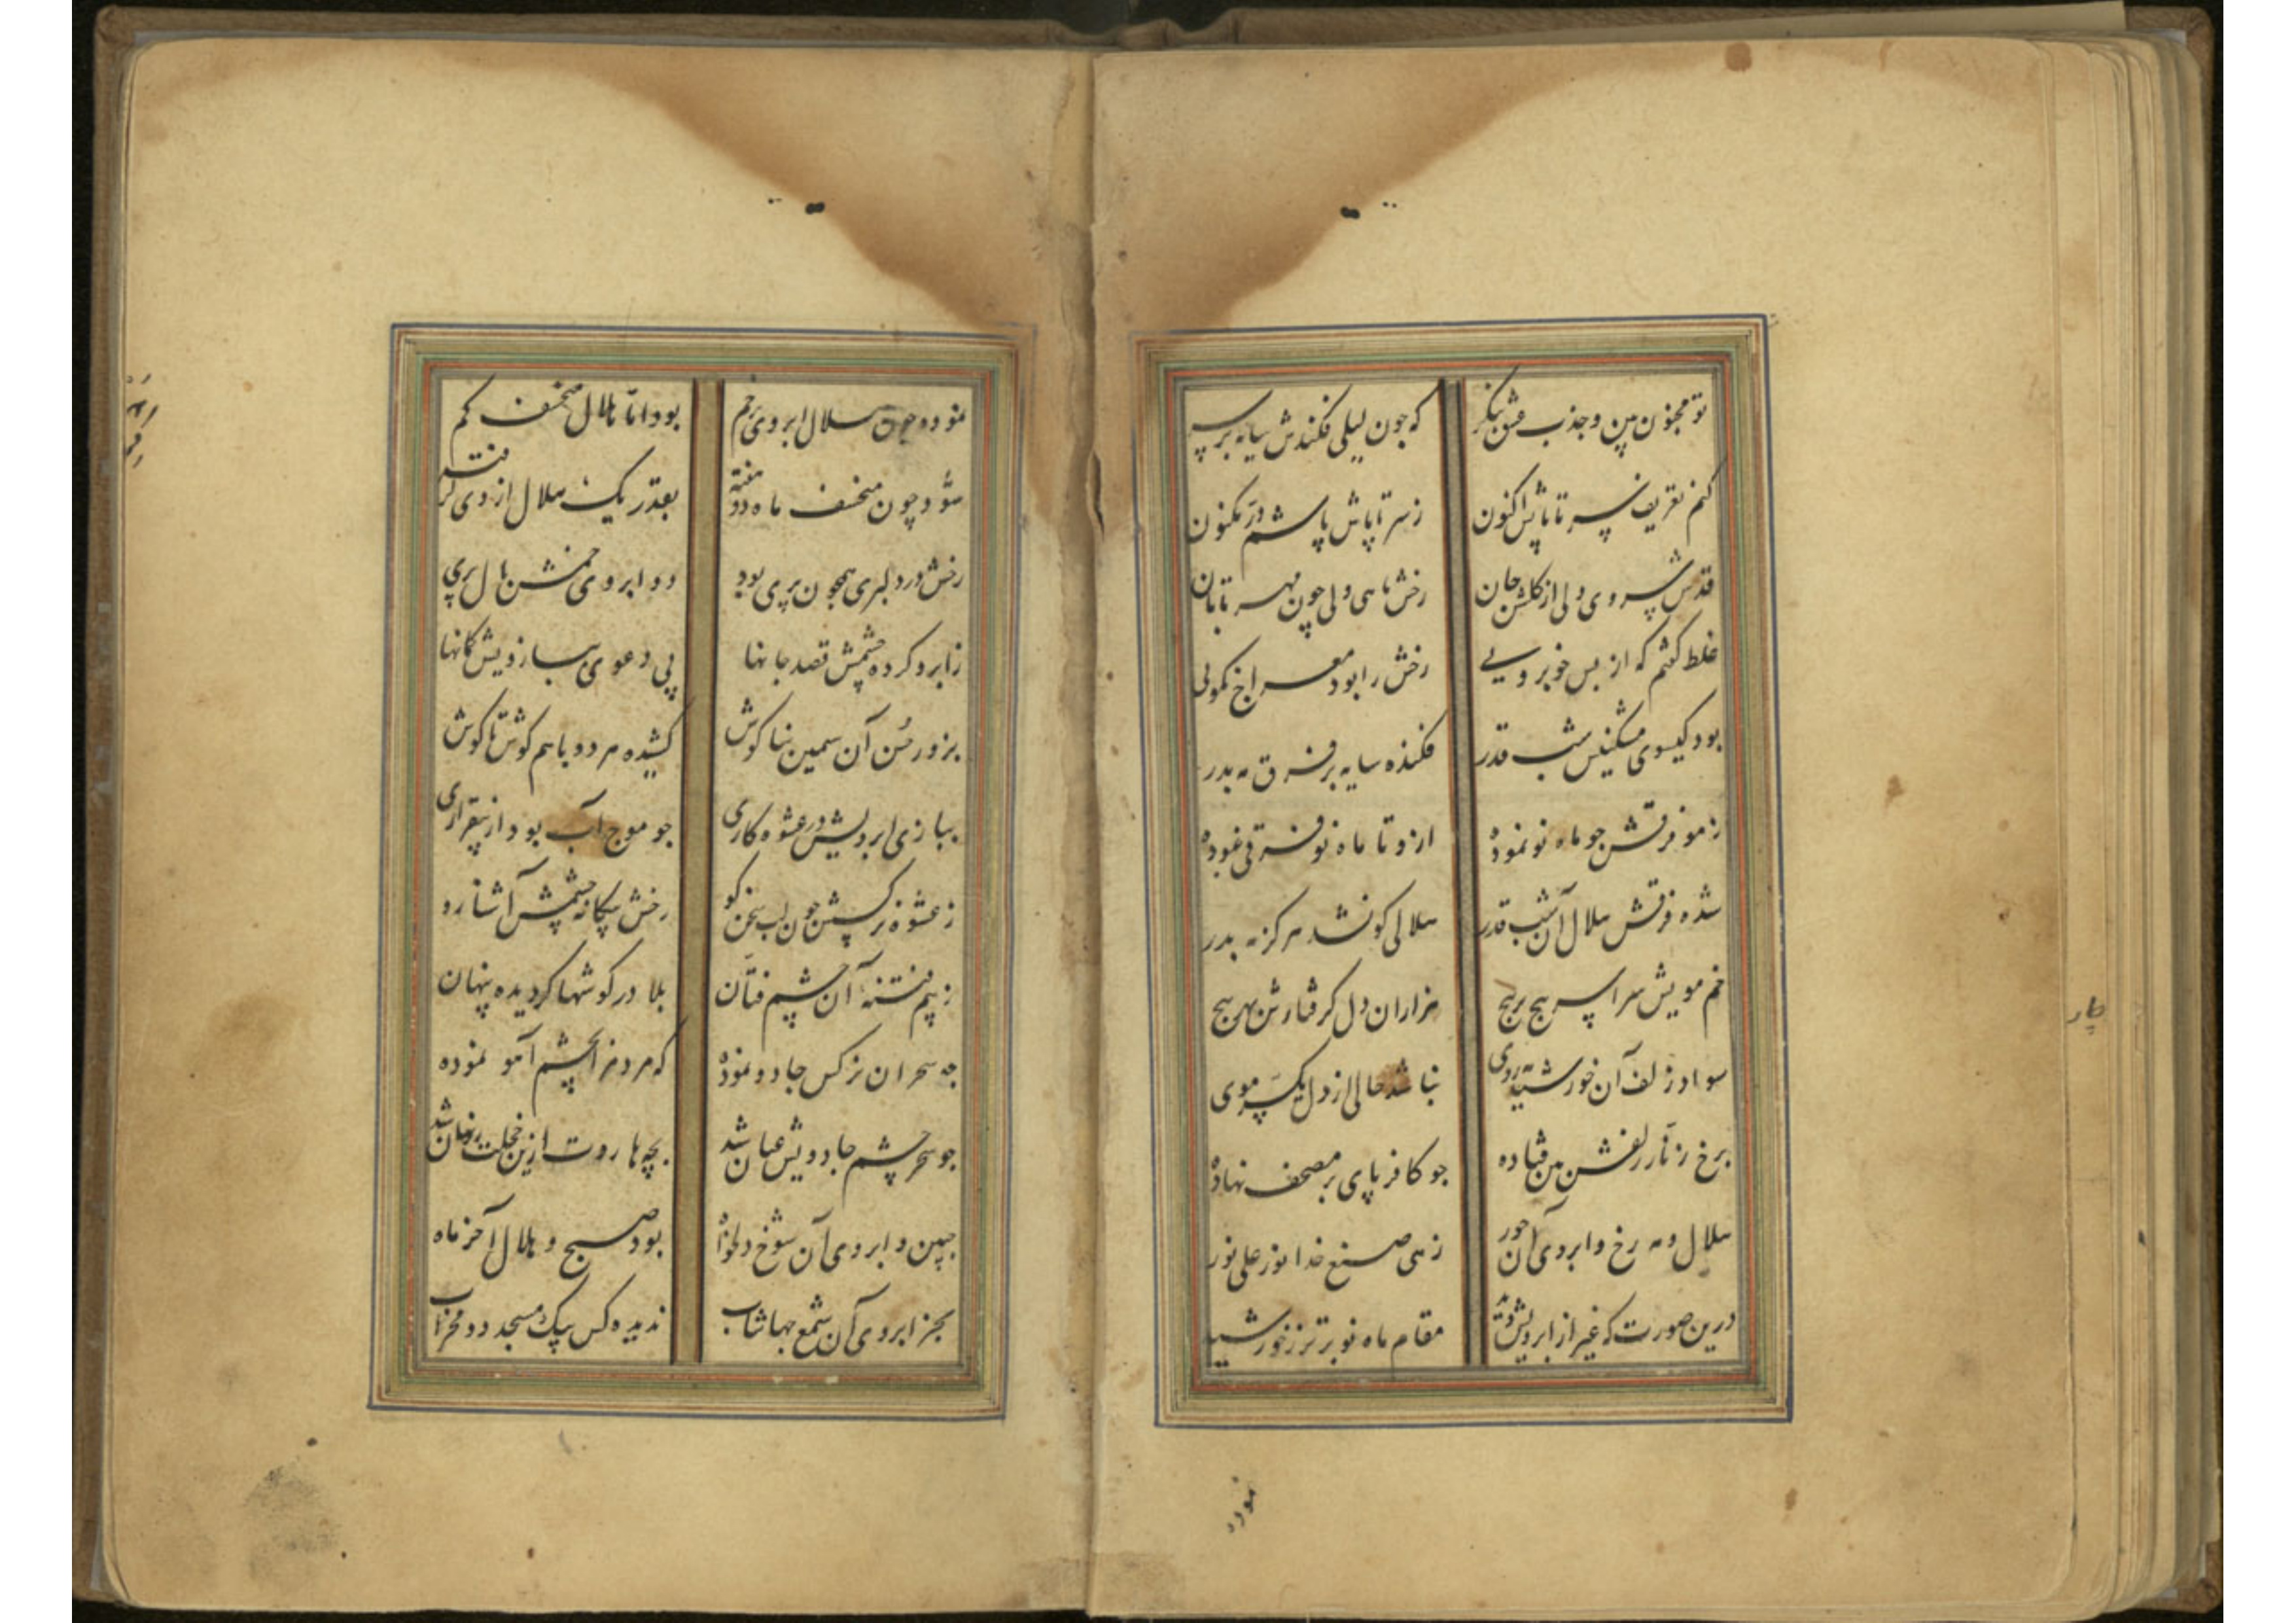 تو مجنون بین و جذب عشق بنگر
که چون لیلی فکندش سایه بر سر
کنم تعریف سر تا پاش اکنون
ز سر تا پاش پاشم در مکنون
قدش سروی ولی از گلشن جان
رخش ماهی ولی چون مهر تابان
غلط گفتم که از بس خوبرویی
رخش را بود معراج نکویی
بود گیسوی مشکینش شب قدر
فکنده سایه بر فرق مه بدر
ز مو فرقش چو ماه نو نموده
ازو تا ماه نو فرقی نبوده
شده فرقش هلال آن شب قدر
هلالی کو نشد هرگز مه بدر
خم مویش سراسر پیچ بر پیچ
هزاران دل گرفتارش بهر پیچ
سواد زلف آن خورشید روی
نباشد خالی از دل یک سر موی
برخ زنار زلفش بین فتاده
چو کافر پای بر مصحف نهاده
هلال و مه رخ و ابروی آن حور
زهی صنع خدا نور علی نور
درین صورت که غیر از ابرویش دید
مقام ماه نو برتر ز خورشید
نموده
نموده چون هلال ابروی پرخم
بود اما هلال منخسف کم
شود چون منخسف ماه دو هفته
بقدر یک هلال از وی گرفته
رخش در دلبری همچون پری بود
دو ابروی خمش بال پری
ز ابرو کرده چشمش قصد جانها
پی دعوی بیازویش کمانها
بزور حسن آن سیمین بناگوش
کشیده هر دو با هم گوش تا گوش
ببازی ابرویش در عشوه کاری
چو موج آب بود از بیقراری
ز عشوه نرگسش چون لب سخن گو
رخش بیگانه چشمش آشنا رو
ز بیم فتنه آن چشم فتان
بلا در گوشها گردیده پنهان
چه سحر آن نرگس جادو نموده
که مردم را بچشم آهو نموده
چو سحر چشم جادویش عیان شد
بچه هاروت ازین خجلت نهان شد
جبین و ابروی آن شوخ دلخواه
بود صبح و هلال آخر ماه
بجز ابروی آن شمع جهانتاب
ندیده کس بیک مسجد دو محراب